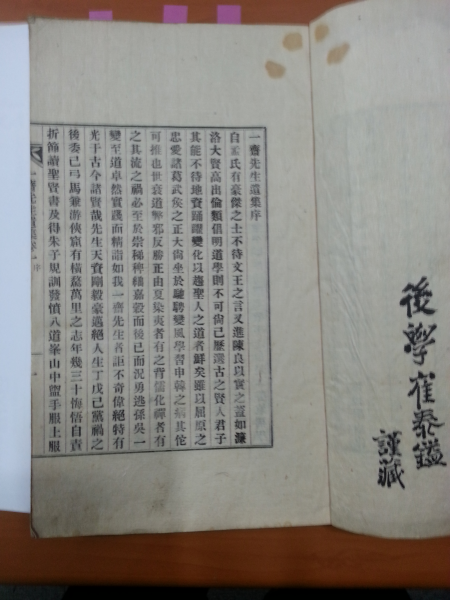 後學崔泰鑑
謹藏
一齋先生遺集序
自孟氏有豪傑之士不待文王之言又進陳良以實之蓋如濂
洛大賢高出倫類倡明道學則不可尙已歷選古之賢人君子
其能不待地資踊躍變化以趨聖人之道者鮮矣雖以屈原之
忠愛諸葛武矦之正大尙坐於馳騁變風學習申韓之病其佗
可推也世衰道弊邪反勝正由夏染夷者有之背儒化禪者有
之其流之禍必至於崇稊稗播嘉穀而後已而況勇逃孫吳一
變至道卓然實踐而精詣如我一齋先生者詎不奇偉絕特有
光于古今諸賢哉先生天資剛毅豪邁絕人生丁戊己黨禍之
後委己弓馬兼游俠窟有橫嘉萬里之志年幾三十悔悟自責
折節讀聖賢書及得朱子規訓發憤入道峯山中盟手服上服
一齋先生遺集 序 一